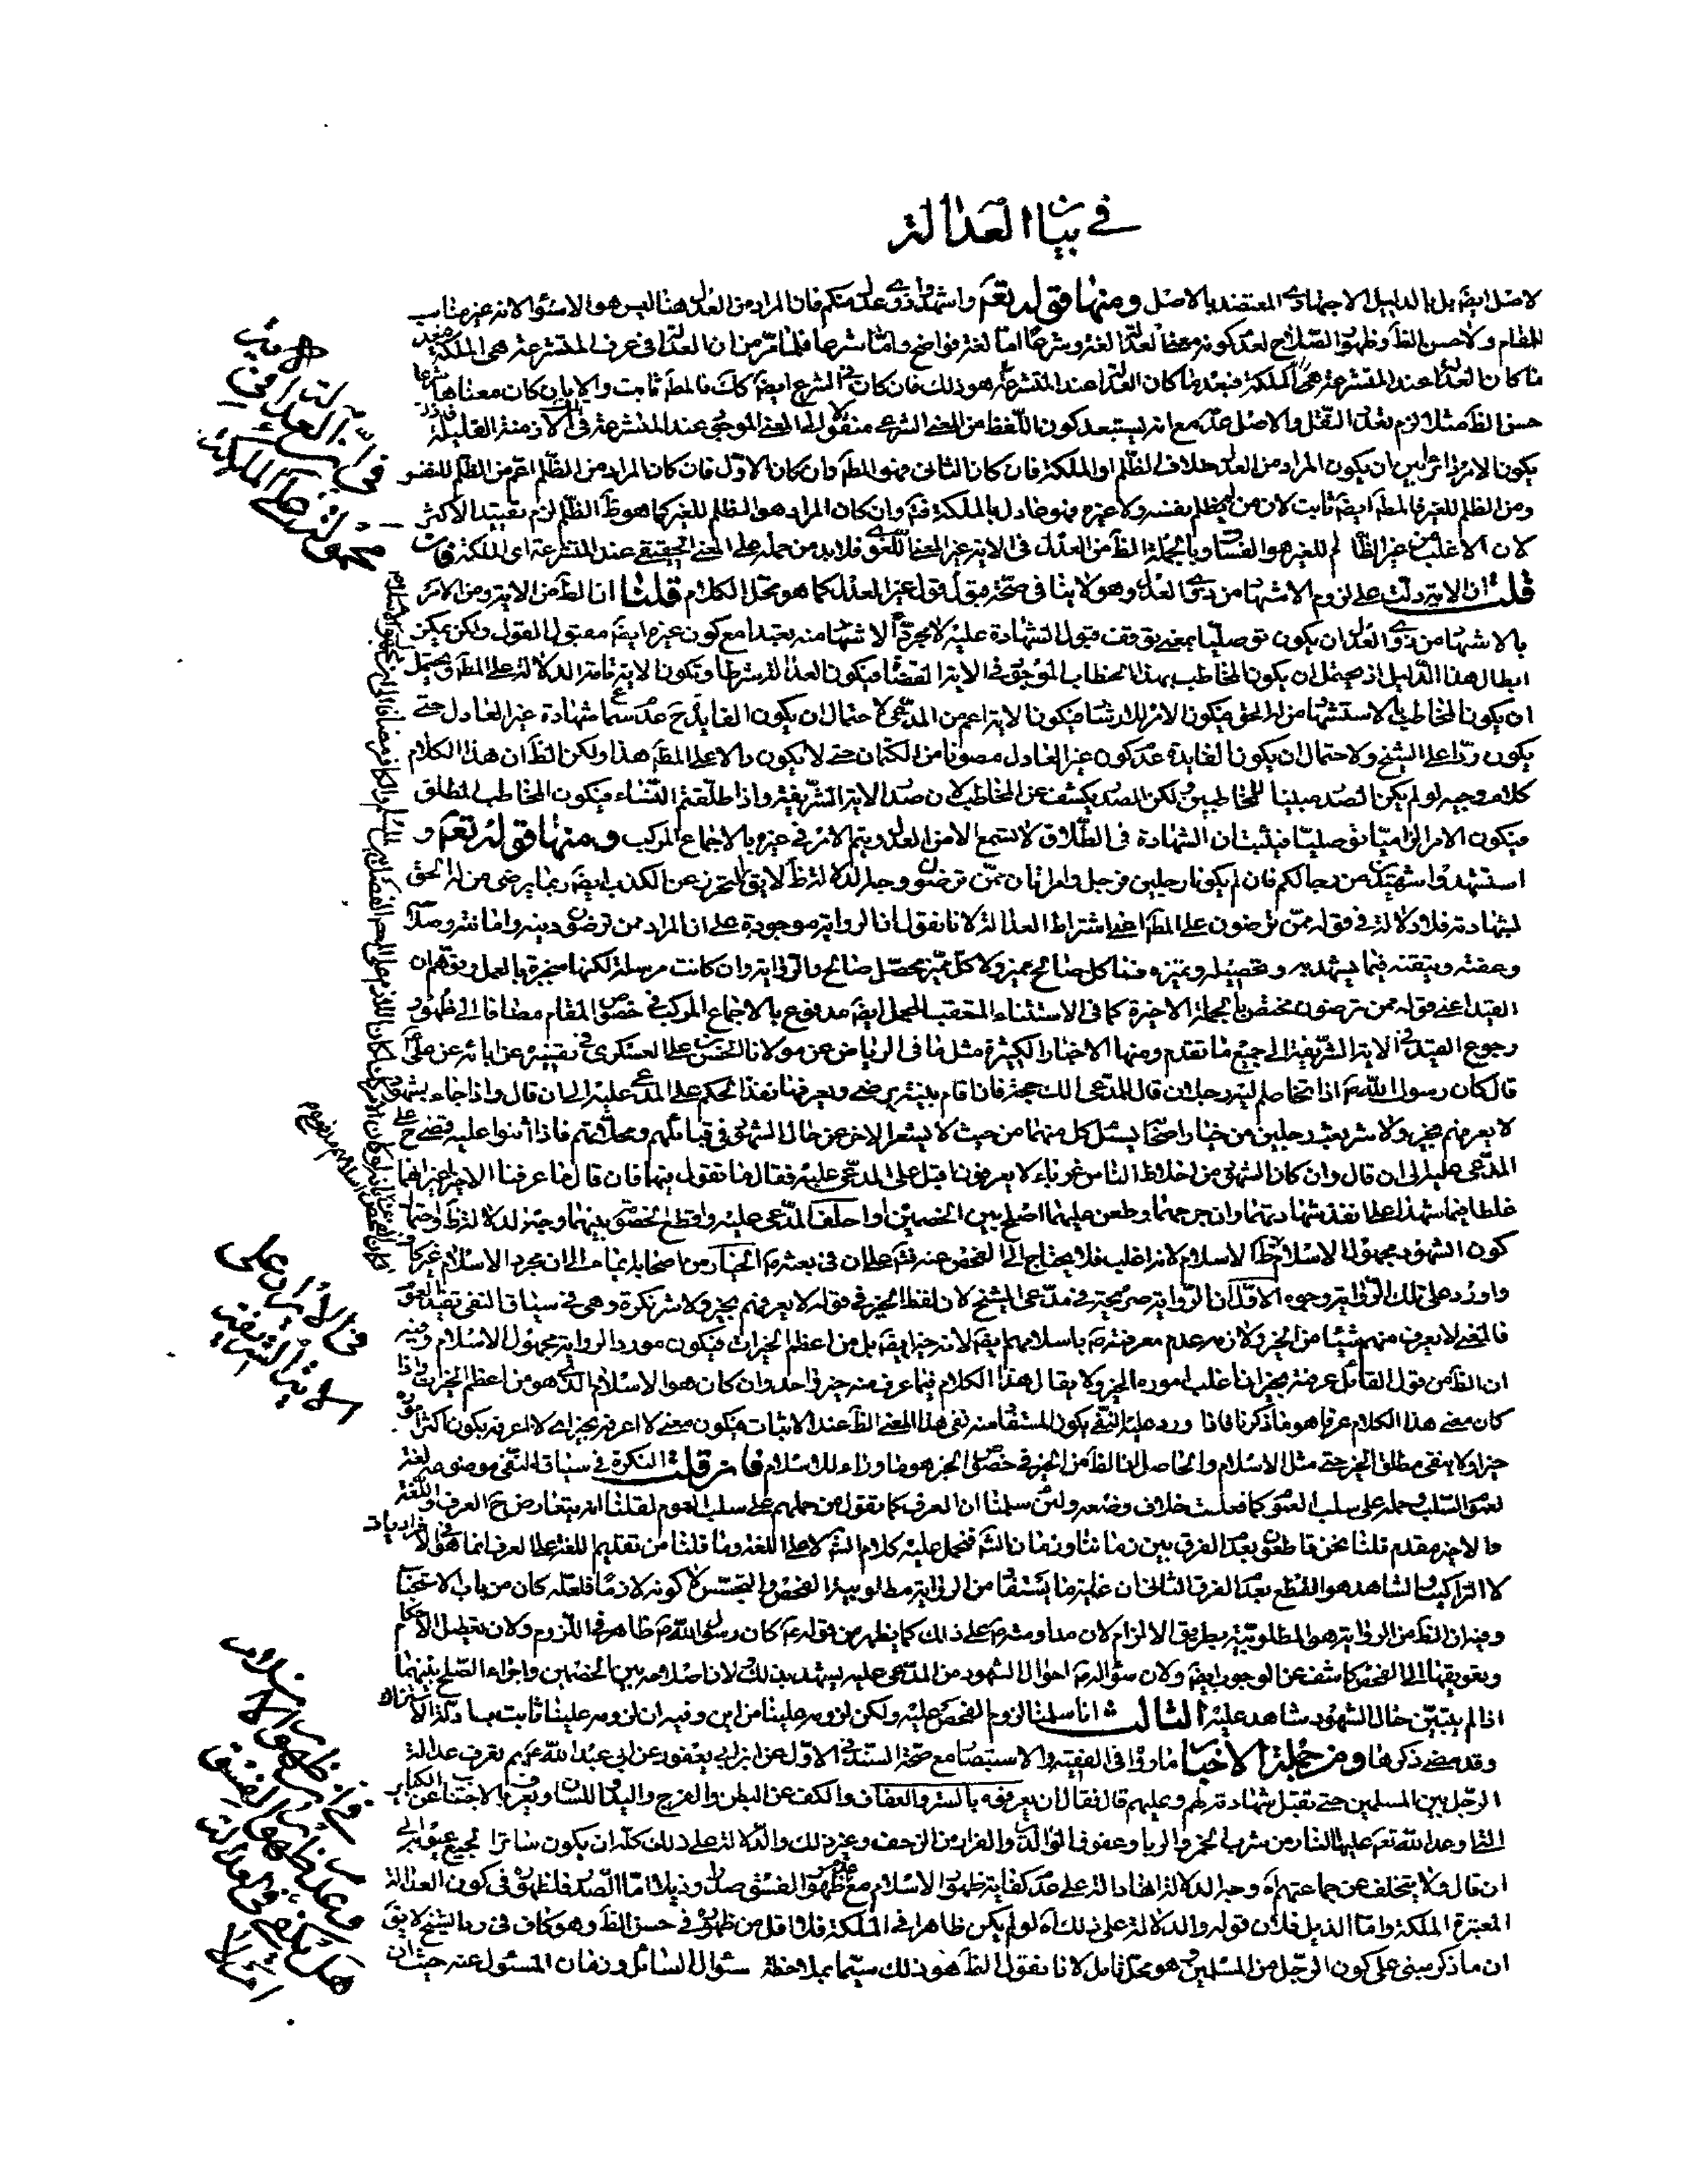 في بيان العدالة
لاصل ايضا بل بالدليل الاجتهادي المعتضد بالاصل ومنها قوله تعم واشهدوا ذوي عدل منكم فان المراد من العدل هنا ليس هو الاستواء لانه غير مناسب
للمقام ولا حسن الظ وظهور الصلاح لعدم كونه معنى العدالة لغة وشرعا اما لغة فواضح واما شرعا فلما مر من ان العدالة في عرف المتشرعة هي الملكة
ما كان العدالة عند المتشرعة هي الملكة فبعد ما كان العدالة عند المتشرعة هو ذلك فان كان في الشرع ايضا كك فالمط ثابت والا بان كان معناها شرعا
حسن الظ مثلا لزم تعدد النقل والاصل عدمه مع انه يستبعد كون اللفظ من المعنى الشرعي منقولا الى المعنى الموجود عند المتشرعة في الازمنة القليلة
يكون الامر دائرا بين ان يكون المراد من العدل خلاف الظلم او الملكة فان كان الثاني فهو المط وان كان الاول فان كان المراد من الظلم اعم من الظلم للنفس
ومن الظلم للغير فالمط ايضا ثابت لان من لم يظلم نفسه ولا غيره فهو عادل بالملكة فتم وان كان المراد هو الظلم للغير كما هو ظ الظلم لزم تقييد الاكثر
لان الاغلب من غير الظالم للغير هو الفساق وبالجملة الظ من العدل في الاية غير المعنى اللغوي فلا بد من حمله على المعنى الحقيقي عند المتشرعة اي الملكة فان
قلت ان الاية دلت على لزوم الاشهاد من ذوي العدل وهو لا ينافي صحة قبول قول غير العدل كما هو محل الكلام قلنا ان الظ من الاية ومن الامر
بالاشهاد من ذوي العدل ان يكون توصليا بمعنى توقف قبول الشهادة عليه لا مجرد الاشهاد منه تعبدا مع كون غيره ايضا مقبول القول ولكن يمكن
ابطال هذا الدليل اذ يحتمل ان يكون المخاطب بهذا الخطاب الموجود في الاية القضاة فيكون العدالة شرطا وتكون الاية تامة الدلالة على المط ويحتمل
ان يكون المخاطب بالاستشهاد من له الحق فيكون الامر للارشاد فيكون الاية اعم من المدعى لاحتمال ان يكون الفايدة ح عدم سماع شهادة غير العادل حتى
يكون ردا على الشيخ ولاحتمال ان يكون الفايدة عدم كون غير العادل مصونا من الكتمان حتى لا يكون دالا على المط هذا ولكن الظ ان هذا الكلام
كلام وجيه لو لم يكن الصدر مبينا للمخاطبين لكن الصدر يكشف عن المخاطب لان صدر الاية الشريفة واذا طلقتم النساء فيكون المخاطب المطلق
فيكون الامر الزاميا توصليا فيثبت ان الشهادة في الطلاق لا تسمع الا من العدل ويتم الامر في غيره بالاجماع المركب ومنها قوله تعم و
استشهدوا شهيدين من رجالكم فان لم يكونا رجلين فرجل وامراتان ممن ترضون وجه الدلالة ظ لا يق المتحرز عن الكذب ايضا ربما يرضى من له الحق
لشهادته فلا دلالة في قوله ممن ترضون على المط اعني اشتراط العدالة لانا نقول ان الرواية موجودة على ان المراد ممن ترضون دينه وامانته وصلاحه
وعفته وتيقنه فيما يشهد به وتحصيله وتميزه فما كل صالح مميز ولا كل مميز محصل صالح والرواية وان كانت مرسلة لكنها منجبرة بالعمل وتوهم ان
القيد اعني قوله ممن ترضون مختص بالجملة الاخيرة كما في الاستثناء المتعقب للجمل ايضا مدفوع بالاجماع المركب في خصوص المقام مضافا الى ظهور
رجوع القيد في الاية الشريفة الى جميع ما تقدم ومنها الاخبار الكثيرة مثل ما في الرياض عن مولانا الحسن بن علي العسكري في تفسيره عن ابائه عن علي ع
قال كان رسول الله ص اذا تخاصم اليه رجلان قال للمدعي الك حجة فان اقام بينة يرضى ويعرفها نفذ الحكم على المدعى عليه الى ان قال واذا جاء بشهود
لا يعرفهم بخير ولا شر بعث رجلين من خيار اصحابه يسئل كل منهما من حيث لا يشعر الاخر عن حال الشهود في قبائلهم ومحلاتهم فاذا اثنوا عليه قضى ح على
المدعى عليه الى ان قال وان كان الشهود من اخلاط الناس غرباء لا يعرفون اقبل على المدعى عليه فقال ما تقول فيهما فان قال ما عرفنا الا خيرا غير انهما
غلطا فيما شهدا علي انفذ شهادتهما وان جرحهما وطعن عليهما اصلح بين الخصمين او احلف المدعى عليه وقطع الخصومة بينهما وجه الدلالة ظ واحتمال
كون الشهود مجهولي الاسلام خلاف ظ الاسلام لانه اغلب فلا يحتاج الى الفحص عنه فتم على ان في بعثه ص الخيار من اصحابه ايماء الى ان مجرد الاسلام غير كاف
واورد على تلك الرواية وجوه الاول ان الرواية صريحة في مدعى الشيخ لان لفظ الخير في قوله لا يعرفهم بخير ولا شر نكرة وهي في سياق النفي تفيد العموم
فالمعنى لا يعرف منهم شيئا من الخير ولازمه عدم معرفته ص باسلامهم ايضا لانه خير ايضا بل من اعظم الخيرات فيكون مورد الرواية مجهول الاسلام وفيه
ان الظ من قول القائل عرفته بخير ان اغلب اموره الخير ولا يقال هذا الكلام فيما عرف منه خير واحد وان كان هو الاسلام الذي هو من اعظم الخيرات واذا
كان معنى هذا الكلام عرفا هو ما ذكرنا فاذا ورد عليه النفي يكون المستفاد منه نفي هذا المعنى الظ عند الاثبات فيكون معنى لا اعرفه بخير اي لا اعرفه يكون اكثر اموره
خيرا ولا ينفي مطلق الخير حتى مثل الاسلام والحاصل ان الظ من الخير في خصوص الخبر هو ما وراء الاسلام فان قلت النكرة في سياق النفي موضوعه لغة
لعموم السلب وحمله على سلب العموم كما فعلت خلاف وضعه ولئن سلمنا ان العرف كما تقول من حملهم على سلب العموم لقلنا انه يتعارض ح العرف واللغة
والاخير مقدم قلنا نحن قاطعون بعدم الفرق بين زماننا وزمان الشه فنحمل عليه كلام الشه لا على اللغة وما قلنا من تقديم اللغة على العرف انما هو في الافراديات
لا التراكيب والشاهد هو القطع بعدم الفرق الثاني ان غاية ما يستفاد من الرواية مطلوبية الفحص والتجسس لا كونه لازما فلعله كان من باب الاستحباب
وفيه ان الظ من الرواية هو المطلوبية بطريق الالزام لان مداومته ص على ذلك كما يظهر من قوله ع كان رسول الله ص ظاهر في اللزوم ولان تعطيل الاحكام
وتعويقها الى الفحص كاشف عن الوجوب ايضا ولان سؤاله ص احوال الشهود من المدعى عليه يشهد بذلك لان اصلاحه بين الخصمين واجراء الصلح بينهما
اذا لم يتبين حال الشهود شاهد عليه الثالث انا سلمنا لزوم الفحص عليه ولكن لزومه علينا من اين وفيه ان لزومه علينا ثابت بادلة الاشتراك
وقد مضى ذكرها ومن جملة الاخبار ما رووا في الفقيه والاستبصار مع صحة السند في الاول عن ابن ابي يعفور عن ابي عبد الله ع بم تعرف عدالة
الرجل بين المسلمين حتى تقبل شهادته لهم وعليهم قال فقال ان يعرفوه بالستر والعفاف والكف عن البطن والفرج واليد واللسان ويعرف باجتناب الكبائر
التي وعد الله تعم عليها النار من شرب الخمر والربا وعقوق الوالدين والفرار من الزحف وغير ذلك والدلالة على ذلك كله ان يكون ساترا لجميع عيوبه الى
ان قال ولا يتخلف عن جماعتهم اه وجه الدلالة انها دالة على عدم كفاية ظهور الاسلام مع عدم ظهور الفسق صدرا وذيلا اما الصدر فلظهوره في كون العدالة
المعتبرة الملكة واما الذيل فلان قوله والدلالة على ذلك اه لو لم يكن ظاهرا في الملكة فلا اقل من ظهوره في حسن الظ وهو كاف في رد الشيخ لا يق
ان ما ذكر مبني على كون الرجل من المسلمين هو محل تامل لانا نقول الظ هو ذلك سيما بملاحظة سئوال السائل وزمان المسئول عنه حيث ان
في ان العدالة في الاية
محمولة على الملكة
في الايراد على
الاية الشريفة
في ان ظهور الاسلام
وعدم ظهور الفسق
هل يكفي في العدالة
ام لا